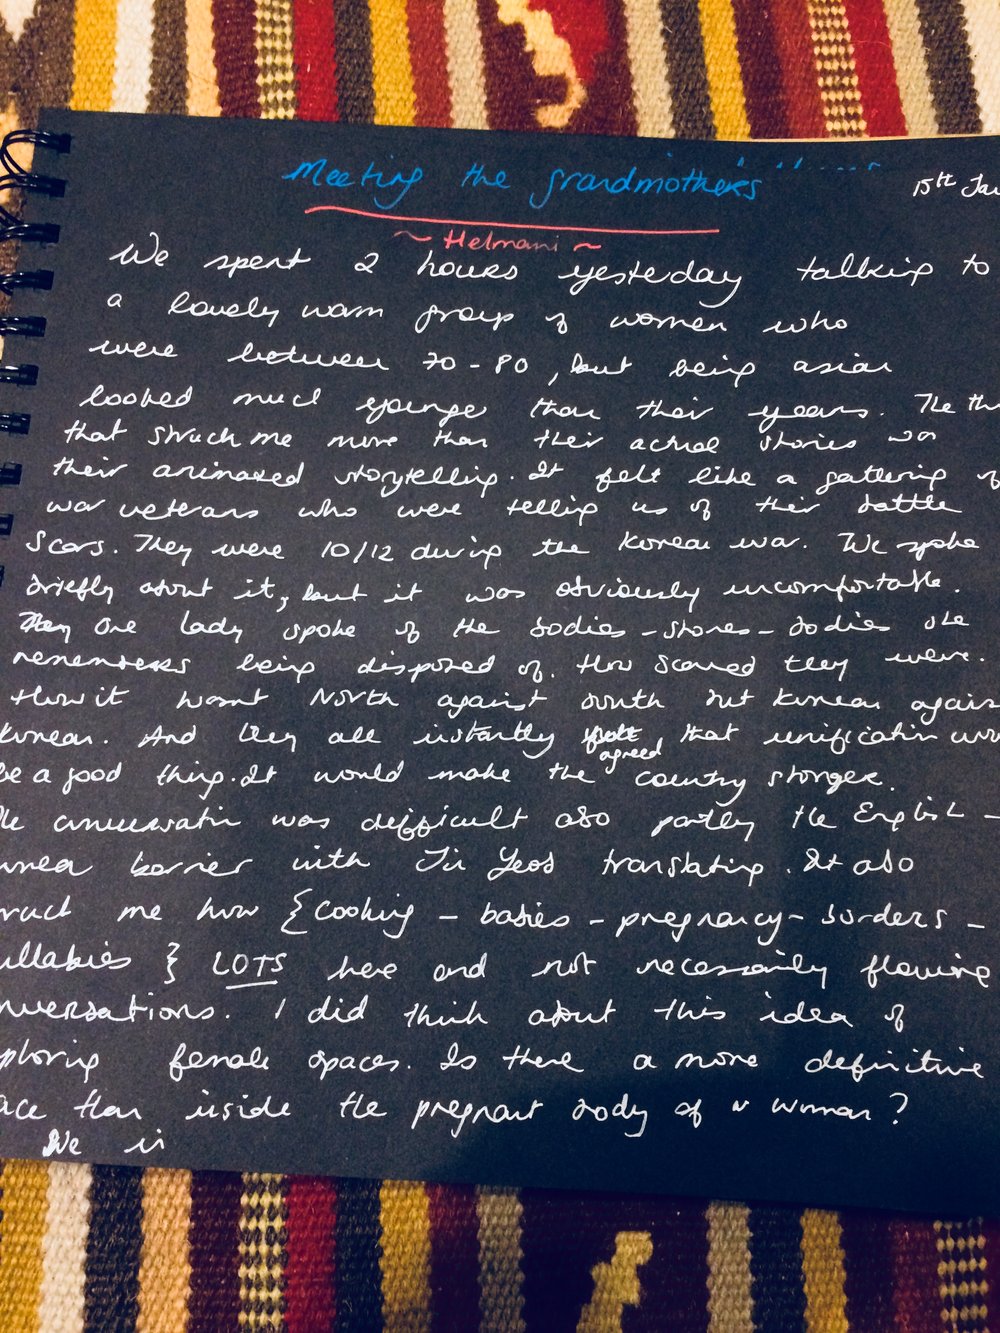 Meeting the grandmothers
15th Jan
~ Helmani ~
We spent 2 hours yesterday talking to
a lovely warm group of women who
were between 70-80, but being asian
looked much younger than their years. The th
that struck me more than their actual stories was
their animated storytelling. It felt like a gathering of
war veterans who were telling us of their battle
scars. They were 10/12 during the Korean war. We spoke
briefly about it, but it was obviously uncomfortable.
One lady spoke of the bodies - stones - bodies she
remembers being disposed of. How scared they were.
How it wasnt North against South but Korean agains
Korean. And they all instantly agreed, that unification wou
be a good thing. It would make the country stronger.
The conversation was difficult also partly the English -
orean barrier with Ji Yeob translating. It also
ruck me how {cooking - babies - pregnancy - borders -
ullabies} LOTS here and not necessarily flowing
nversations. I did think about this idea of
ploring female spaces. Is there a more definitive
ace than inside the pregnant body of a woman?
We in